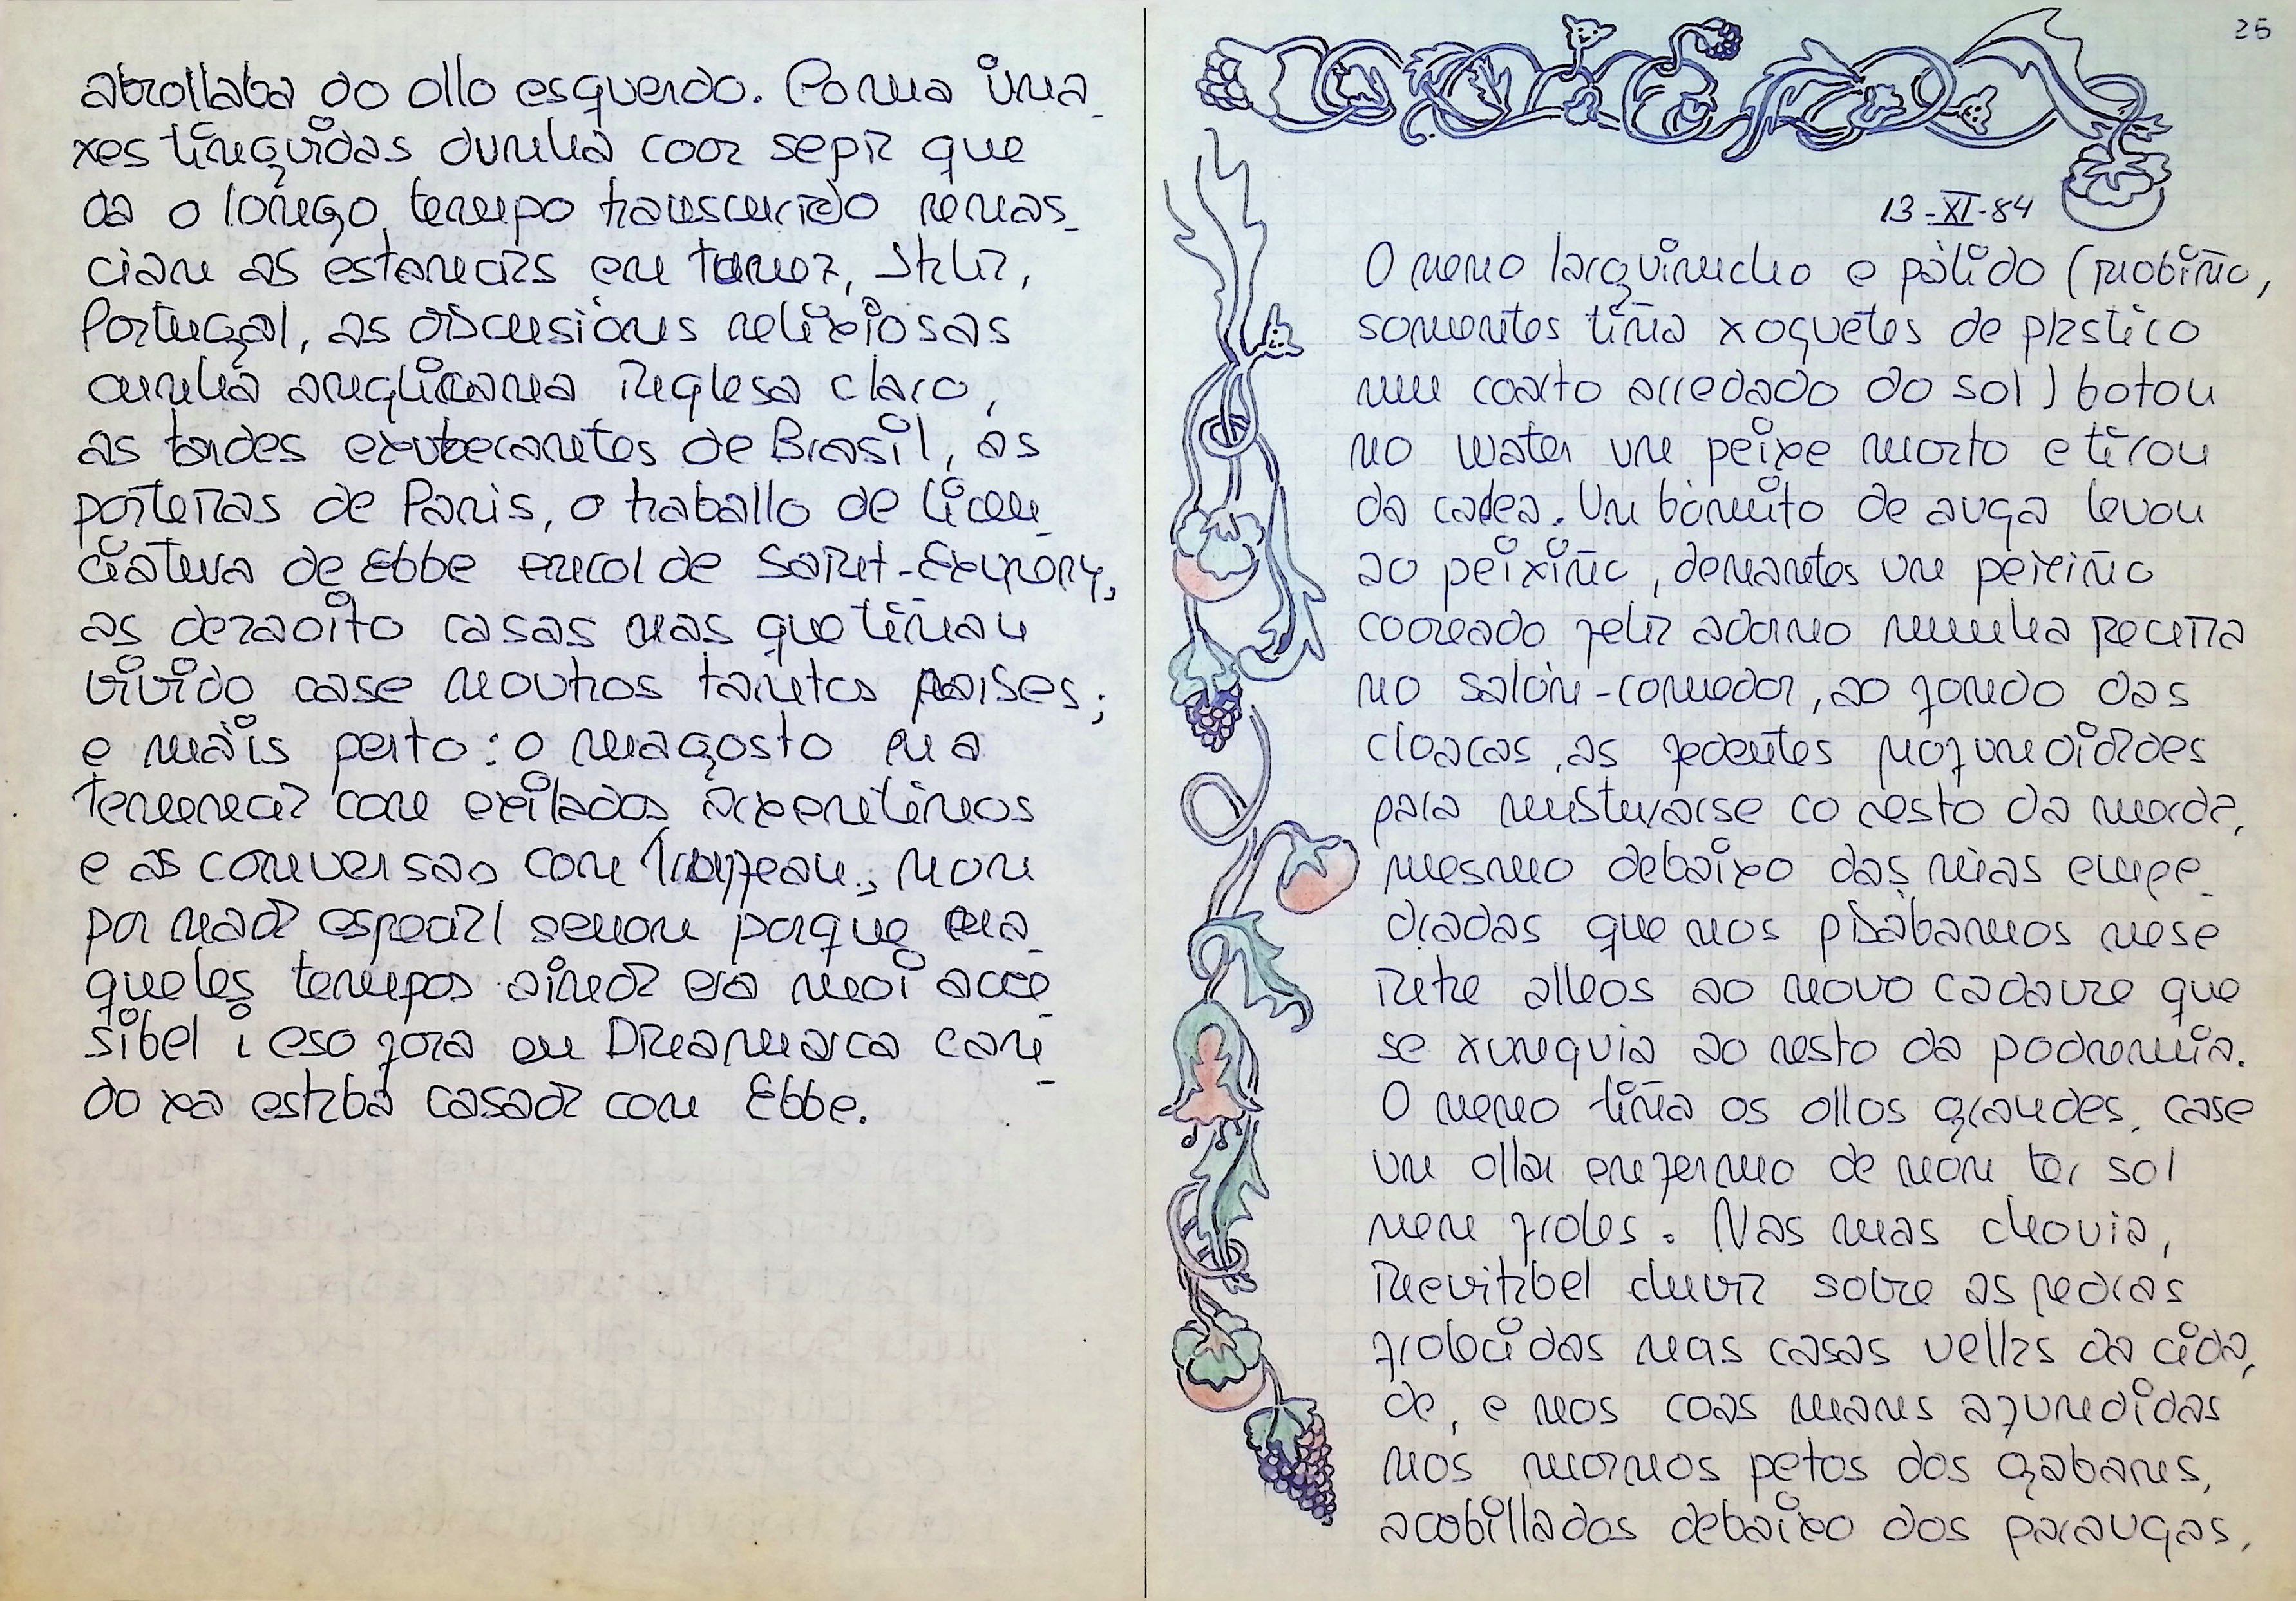 abrollaba do ollo esquerdo. Como ima-
xes tinguidas dunha coor sepia que
da o longo tempo transcurrido renas-
cian as estancias en Italia,
Portugal, as discusions relixiosas
cunha anglicana inglesa claro,
as tardes exuberantes de Brasil, as
porteiras de Paris, o traballo de licen-
ciatura de Ebbe encol de Saint-Exupéry,
as dezaoito casas nas que tiñan
vivido case noutros tantos paises;
e máis perto: o magosto en a
Tenencia con exilados arxentinos
e as conversao con; non
por nada especial senon porque ena-
queles tempos ainda era moi acce-
sibel i eso fora en Dinamarca can-
do xa estaba casada con Ebbe.
25
13-XI-84
O neno larguirucho e pálido (probiño,
somentes tiña xoguetes de plastico
nun coarto arredado do sol) botou
no water un peixe morto e tirou
da cadea. Un bómito de auga levou
ao peixiño, denantes un peixiño
cooreado feliz adorno nunha peceira
no salón-comedor, ao fondo das
cloacas, as fedentes profundidades
para misturarse co resto da merda,
mesmo debaixo das rúas empe-
dradas que nos pisábamos nese
intre alleos ao novo cadavre que
se xunguia ao resto da podremia.
O neno tiña os ollos grandes, case
un ollar enfermo de non ter sol
nen froles. Nas ruas chovia,
inevitabel chuvia sobre as pedras
frolecidas nas casas vellas da cida-
de, e nos coas mans afundidas
nos mornos petos dos gabans,
acobillados debaixo dos paraugas,